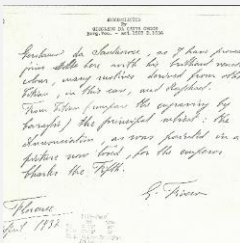 ANNUNCIATION
By
GIROLAMO DA SANTA CROCE
Girolamo da Santacroce, as I have proved
joins
colour, many motives derived from other
Titian, in this case, and Raphael.
From Titian (compare the engraving by
Caraglio) the principal motive: the
Annunciation, as was painted in a
picture now lost, for the emperor
Charles the Fifth.
G. Fiocco
Florence
April 1937